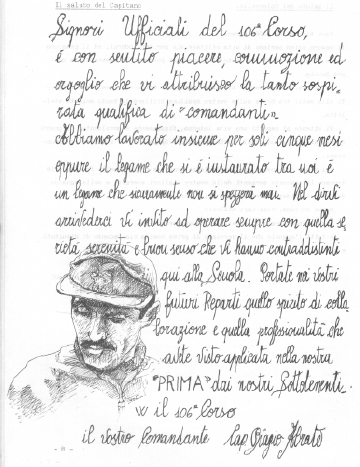 Il saluto del Capitano
Signori Ufficiali del 106° Corso,
é con sentito piacere, commozione ed
orgoglio che vi attribuisco la tanto sospi-
rata qualifica di "comandanti".
Abbiamo lavorato insieme per soli cinque mesi
eppure il legame che si é instaurato tra noi é
un legame che sicuramente non si spezzerá mai. Nel dirvi
arrivederci vi invito ad operare sempre con quella se_
rietá, serenitá e buon senso che vi hanno contraddistinti
qui alla Scuola. Portate nei vostri
futuri Reparti quello spirito di colla_
borazione e quella professionalitá che
avete visto applicata nella nostra
"PRIMA" dai nostri Sottotenenti.
W il 106° Corso
il vostro Comandante Cap. Biagio